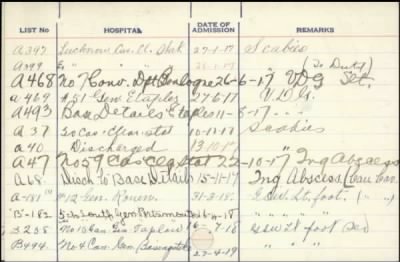 LIST No HOSPITAL DATE OF ADMISSION REMARKS
A347 Lucknow Cas. Cl. Stat 27-1-17 Scabies
A399 " " 28-1-17 (To Duty)
A468 No 7 Conv. Dpt Boulogne 26-6-17 V.D.G Slt.
a 469 #51 Gen Etaples 27 6 17 V.D.G.
A493 Base Details Etaples 11-8-17
A 37 Cas. Clear. Stat 10-10-17 Scabies
a 40 Discharged 13-10-17
A47 No 59 Cas Clg Stat 22-10-17 Ing Abscess
A 68 Disch to Base Details 15-11-17 Ing Abscess,
A-181 #12 Gen. Rouen. 31-3-18. G.S.W. Lt. foot.
B-182 5th South Gen Portsmouth
B 238 No 15 Can Gen Taplow 16-7-18 GSW Lt foot
B494 No 4 Can. Gen Basingstoke 27-4-19